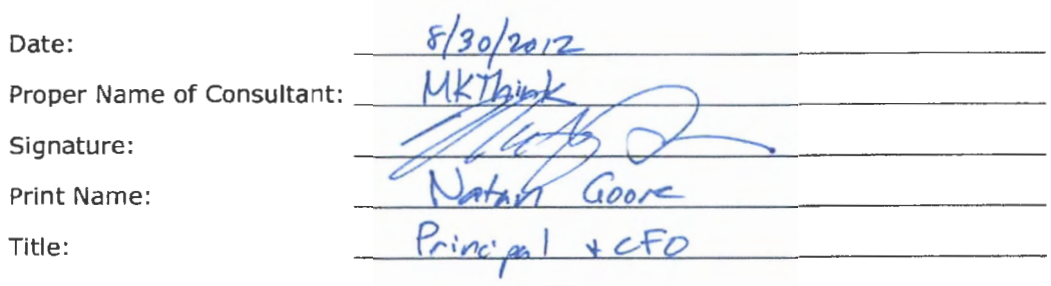 Date: 8/30/2012
Proper Name of Consultant: MKThink
Signature:
Print Name: Natan Goore
Title: Principal + CFO